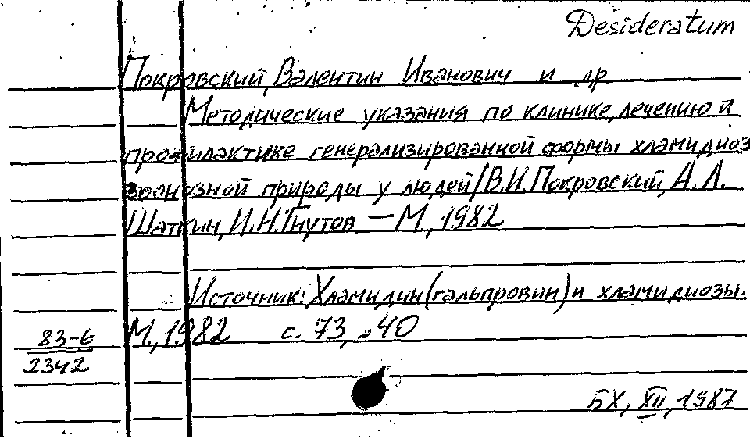 Desideratum
Покровский, Валентин Иванович и др
Методические указания по клинике, лечению и
профилактике генерализированной формы хламидиоз
зоонозной природы у людей/В.И.Покровский, А.А.
Шаткин, И.Н.Гнутов — М., 1982
Источник: Хламидии (гальпровии) и хламидиозы.
83-6 М., 1982 с. 73, №40
2342
БХ, XII, 1987